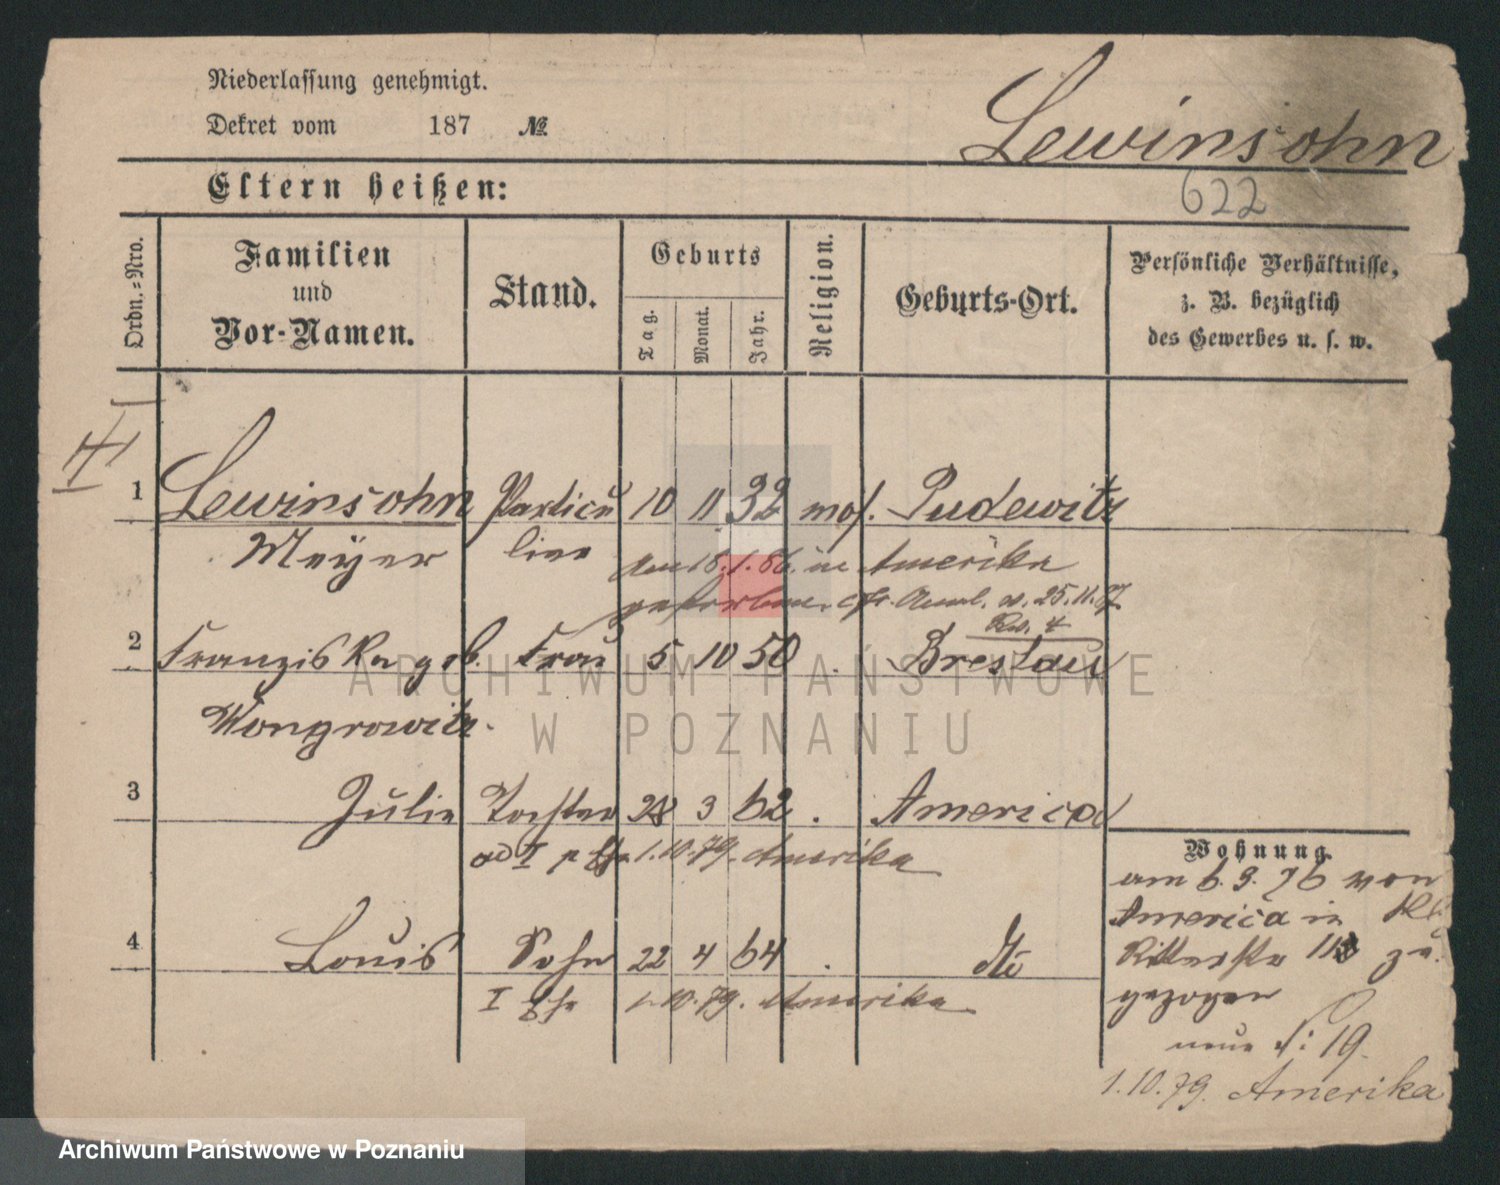 Niederlassung genehmigt.
Dekret vom 187 №
Lewinsohn
Eltern heißen:
622
Ordn.-Nro.
Familien
und
Vor-Namen.
Stand.
Geburts
Tag.
Monat.
Jahr.
Religion.
Geburts-Ort.
Persönliche Verhältnisse,
z. B. bezüglich
des Gewerbes u. s. w.
1 Lewinsohn Particu 10 11 32 mos. Pudewitz
Meyer lier am 18.1.86. in Amerika
gestorben. cfr. v. 25.11.87
2 Franziska geb. Frau 5 10 50 Breslau
Wongrowitz.
3 Julie Tochter 28 3 62 America
ad I 1.10.79. Amerika
4 Louis Sohn 22 4 64 dto
I 1.10.79. Amerika
Wohnung.
am 6.9.76 von
America in
Ritterstr 11 zu
gezogen
neue N: 19.
1.10.79. Amerika
ARCHIWUM PAŃSTWOWE
W POZNANIU
Archiwum Państwowe w Poznaniu